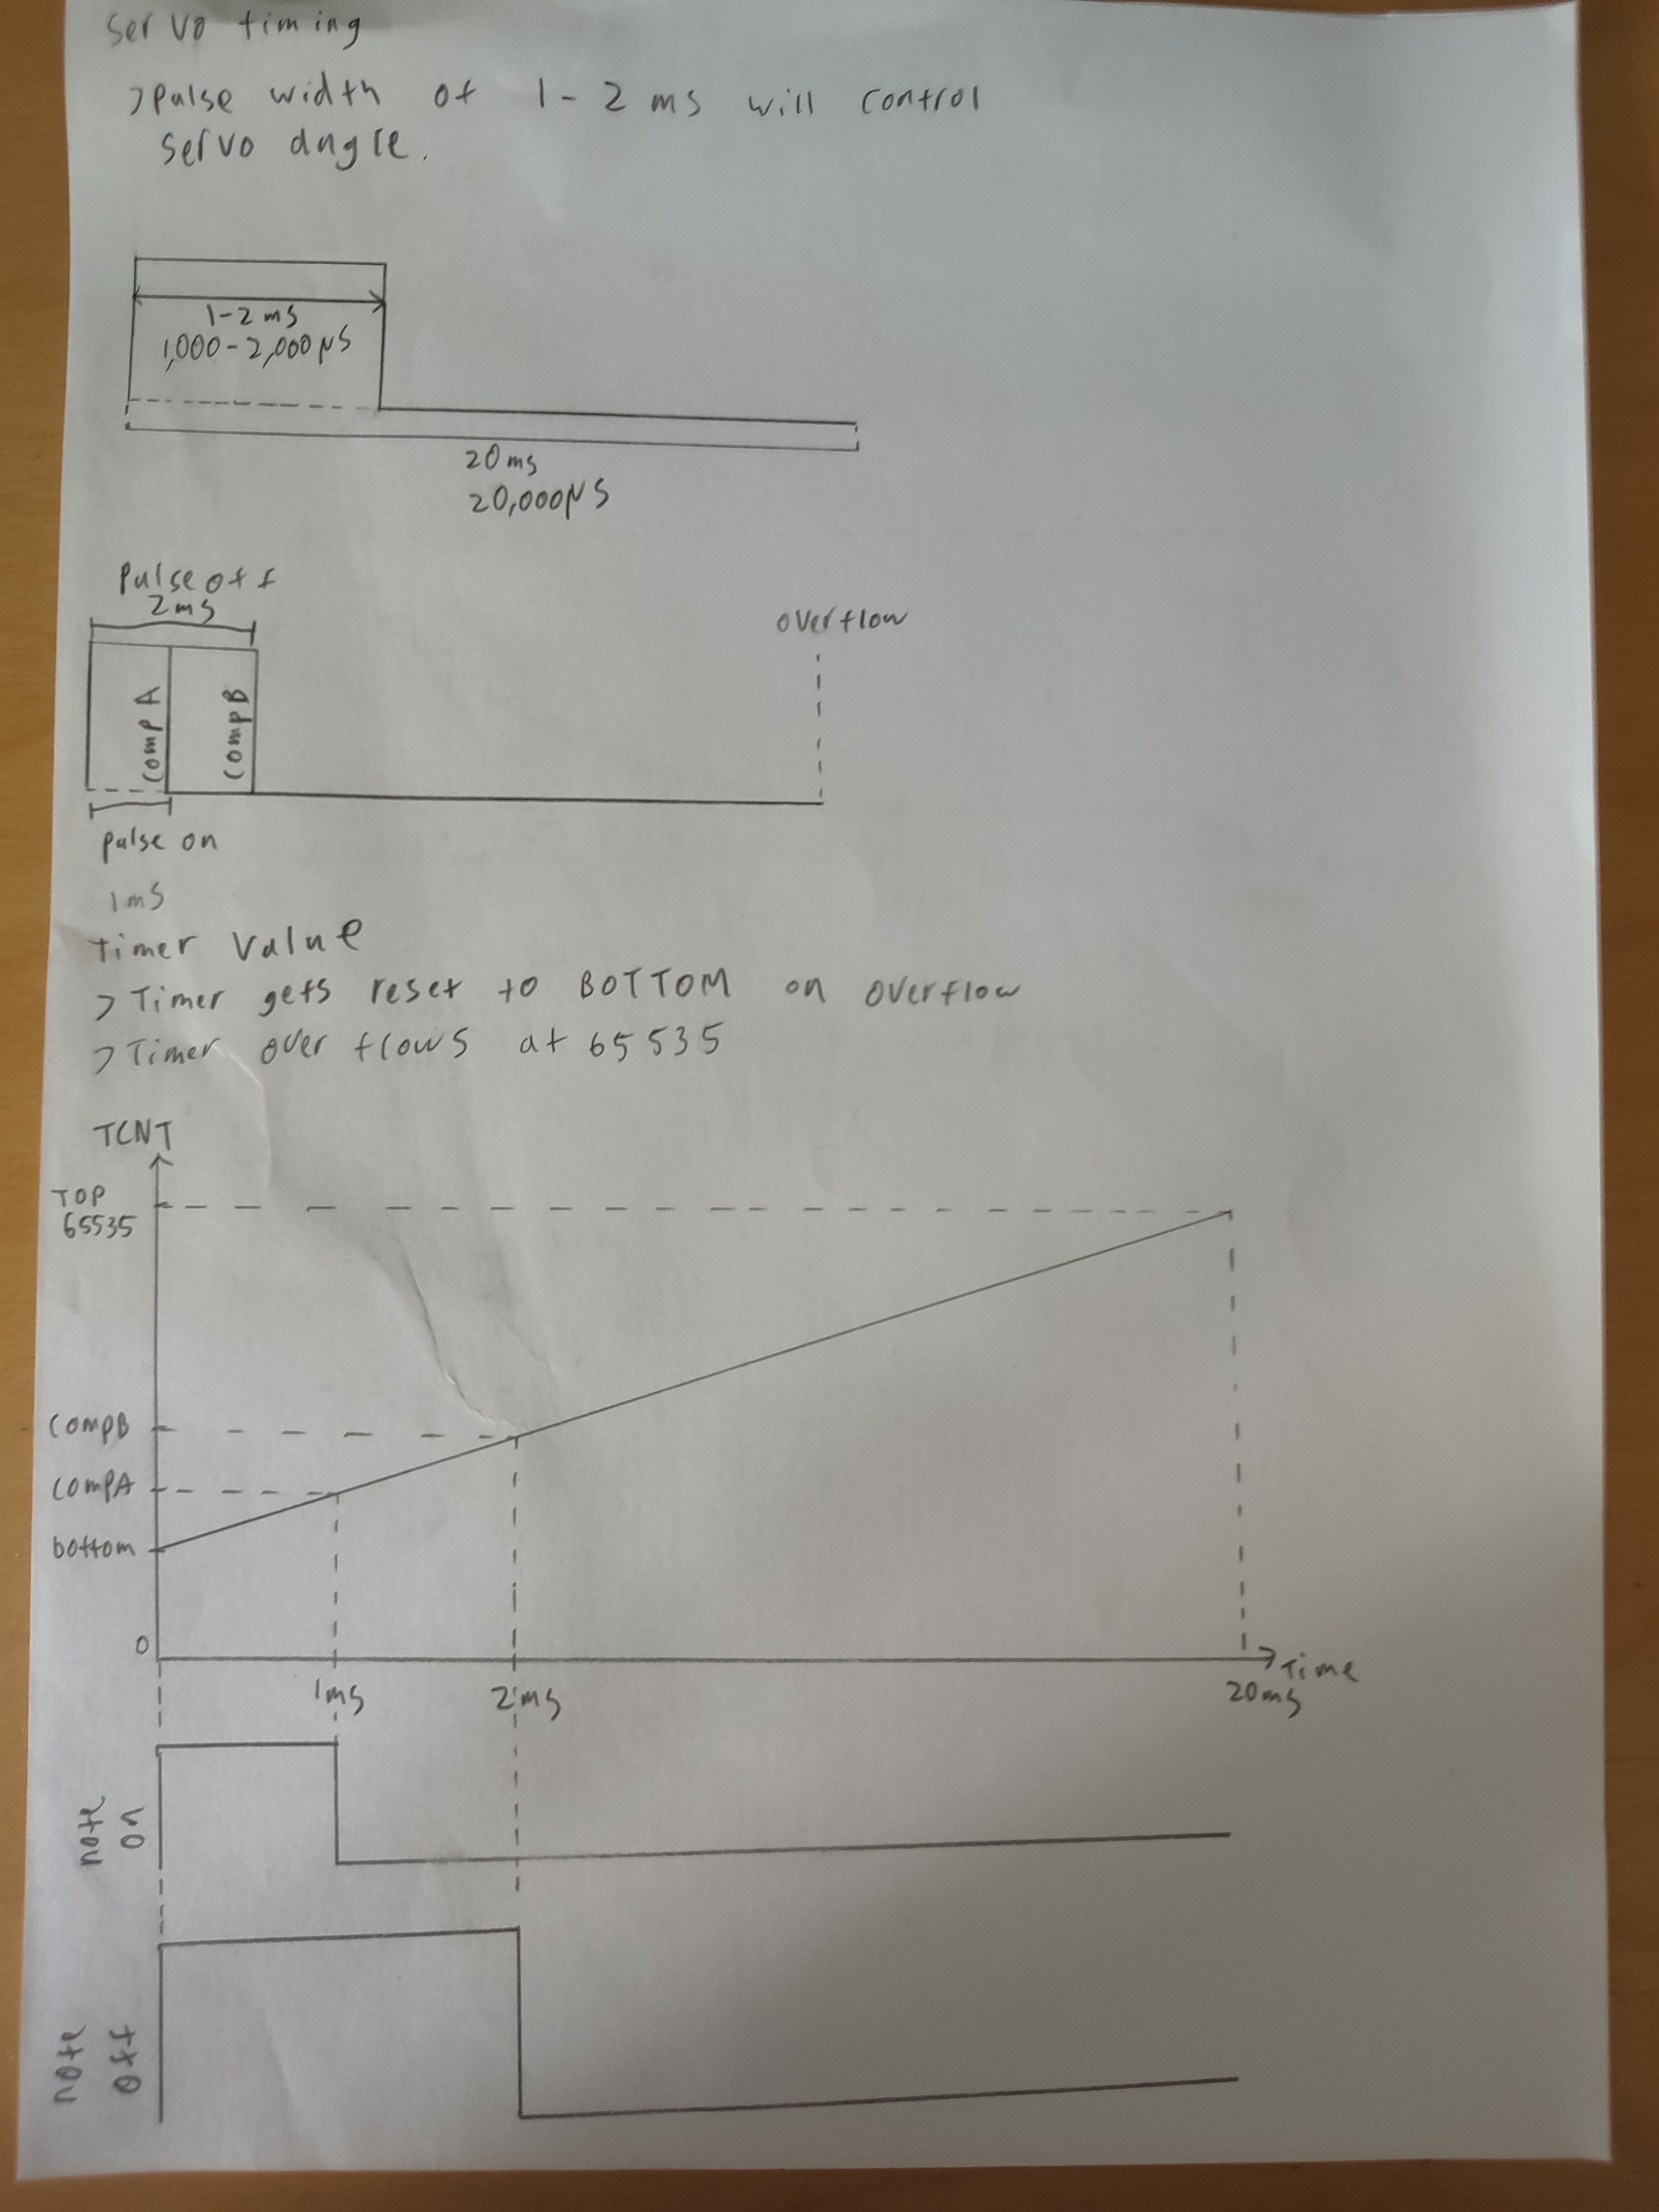 Servo timing
>Pulse width of 1-2 ms will control
servo angle.
1-2 ms
1,000-2,000µs
20ms
20,000µs
Pulse off
2ms
overflow
CompA
CompB
pulse on
1ms
timer Value
>Timer gets reset to BOTTOM on overflow
>Timer over flows at 65535
TCNT
TOP
65535
CompB
CompA
bottom
0
Time
1ms
2ms
20ms
note
on
note
off